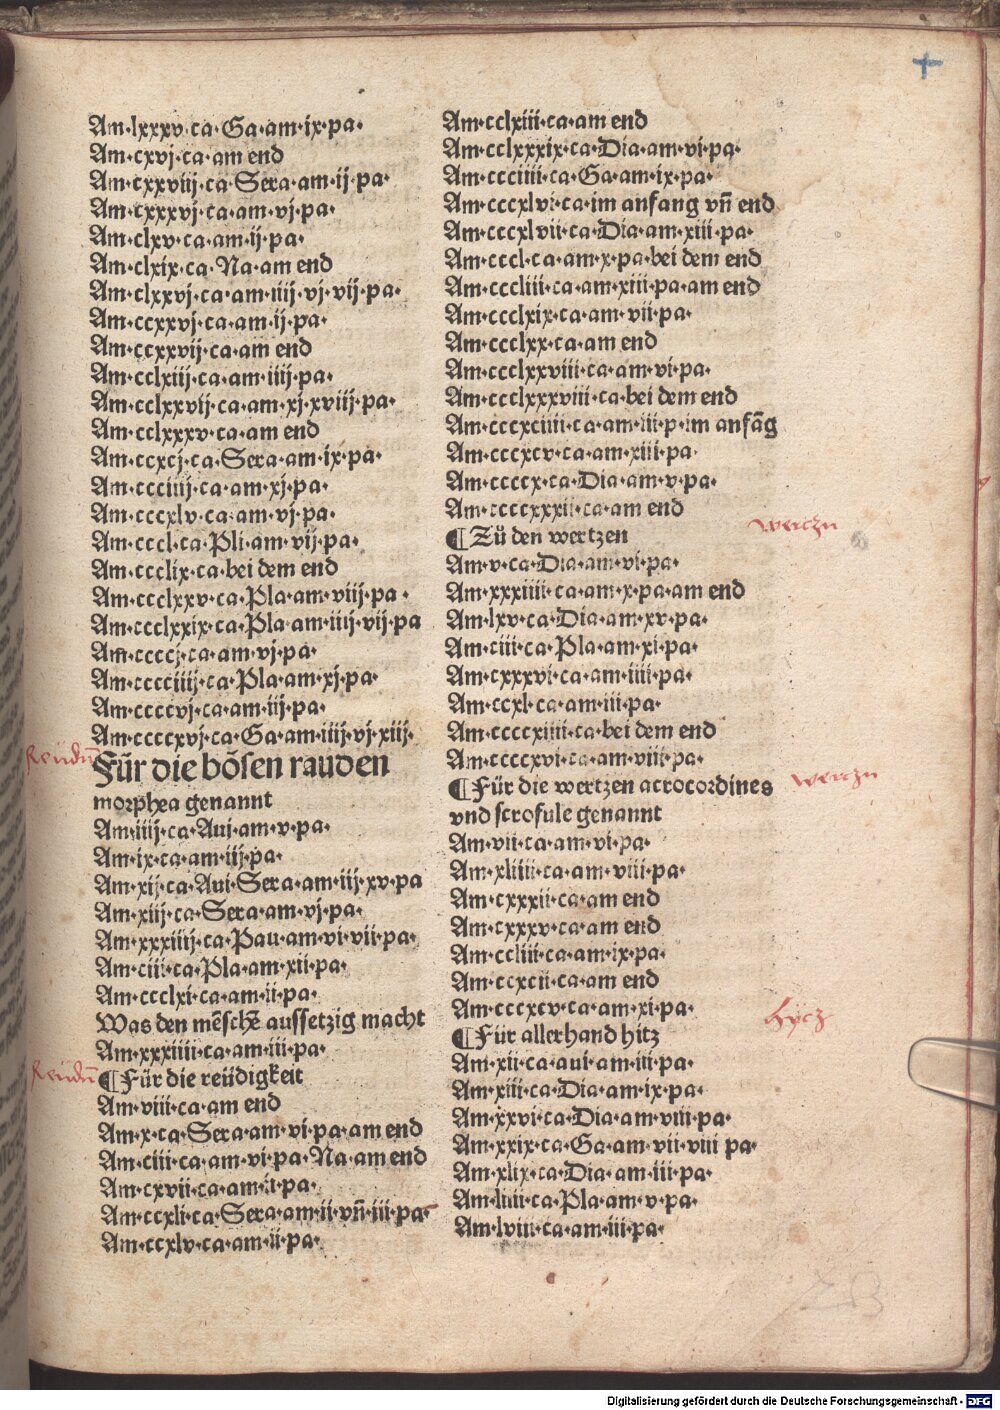 Am·lxxxv·ca·Ga·am·ix·pa·
Am·cxvj·ca·am end
Am·cxxviij·ca·Sera·am·ij·pa·
Am·cxxxvj·ca·am·vj·pa·
Am·clxv·ca·am·ij·pa·
Am·clxix·ca·Na·am end
Am·clxxvj·ca·am·iiij·vj·vij·pa·
Am·ccxxvj·ca·am·ij·pa·
Am·ccxxvij·ca·am end
Am·cclxiij·ca·am·iiij·pa·
Am·cclxxvij·ca·am·xj·xviij·pa·
Am·cclxxxv·ca·am end
Am·ccxcj·ca·Sera·am·ix·pa·
Am·ccciiij·ca·am·xj·pa·
Am·cccxlv·ca·am·vj·pa·
Am·cccl·ca·Pli·am·vij·pa·
Am·ccclix·ca·bei dem end
Am·ccclxxv·ca·Pla·am·viij·pa·
Am·ccclxxix·ca·Pla·am·iiij·vij·pa
Am·ccccj·ca·am·vj·pa·
Am·cccciiij·ca·Pla·am·xj·pa·
Am·ccccvj·ca·am·iij·pa·
Am·ccccxvj·ca·Ga·am·iiij·vj·xiij·
Für die bösen rauden
morphea genannt
Am·iiij·ca·Aui·am·v·pa·
Am·ix·ca·am·iij·pa·
Am·xij·ca·Aui·Sera·am·iij·xv·pa
Am·xiij·ca·Sera·am·vj·pa·
Am·xxxiiij·ca·Pau·am·vi·vii·pa·
Am·ciii·ca·Pla·am·xii·pa·
Am·ccclxi·ca·am·ii·pa·
Was den mēschē aussetzig macht
Am·xxxiiii·ca·am·iii·pa·
¶Für die reüdigkeit
Am·viii·ca·am end
Am·x·ca·Sera·am·vi·pa·am end
Am·ciii·ca·am·vi·pa·Na·am end
Am·cxvii·ca·am·ii·pa·
Am·ccxli·ca·Sera·am·ii·vn̄·iii·pa·
Am·ccxlv·ca·am·ii·pa·
Am·cclxiii·ca·am end
Am·cclxxxix·ca·Dia·am·vi·pa·
Am·ccciiii·ca·Ga·am·ix·pa·
Am·cccxlvi·ca·im anfang vn̄ end
Am·cccxlvii·ca·Dia·am·xiii·pa·
Am·cccl·ca·am·x·pa·bei dem end
Am·cccliii·ca·am·xiii·pa·am end
Am·ccclxix·ca·am·vii·pa·
Am·ccclxx·ca·am end
Am·ccclxxviii·ca·am·vi·pa·
Am·ccclxxxviii·ca·bei dem end
Am·cccxciiii·ca·am·iii·p·im anfāg
Am·cccxcv·ca·am·xiii·pa·
Am·ccccx·ca·Dia·am·v·pa·
Am·ccccxxxii·ca·am end
¶Zů den wertzen
Am·v·ca·Dia·am·vi·pa·
Am·xxxiiii·ca·am·x·pa·am end
Am·lxv·ca·Dia·am·xv·pa·
Am·ciii·ca·Pla·am·xi·pa·
Am·cxxxvi·ca·am·iiii·pa·
Am·ccxl·ca·am·iii·pa·
Am·ccccxiiii·ca·bei dem end
Am·ccccxvi·ca·am·viii·pa·
¶Für die wertzen acrocordines
vnd scrofule genannt
Am·vii·ca·am·vi·pa·
Am·xliiii·ca·am·viii·pa·
Am·cxxxii·ca·am end
Am·cxxxv·ca·am end
Am·ccliii·ca·am·ix·pa·
Am·ccxcii·ca·am end
Am·cccxcv·ca·am·xi·pa·
¶Für allerhand hitz
Am·xii·ca·aui·am·iii·pa·
Am·xiii·ca·Dia·am·ix·pa·
Am·xxvi·ca·Dia·am·viii·pa·
Am·xxix·ca·Ga·am·vii·viii pa·
Am·xlix·ca·Dia·am·iii·pa·
Am·liiii·ca·Pla·am·v·pa·
Am·lviii·ca·am·iii·pa·
werczn
werczn
hycz
Digitalisierung gefördert durch die Deutsche Forschungsgemeinschaft - DFG